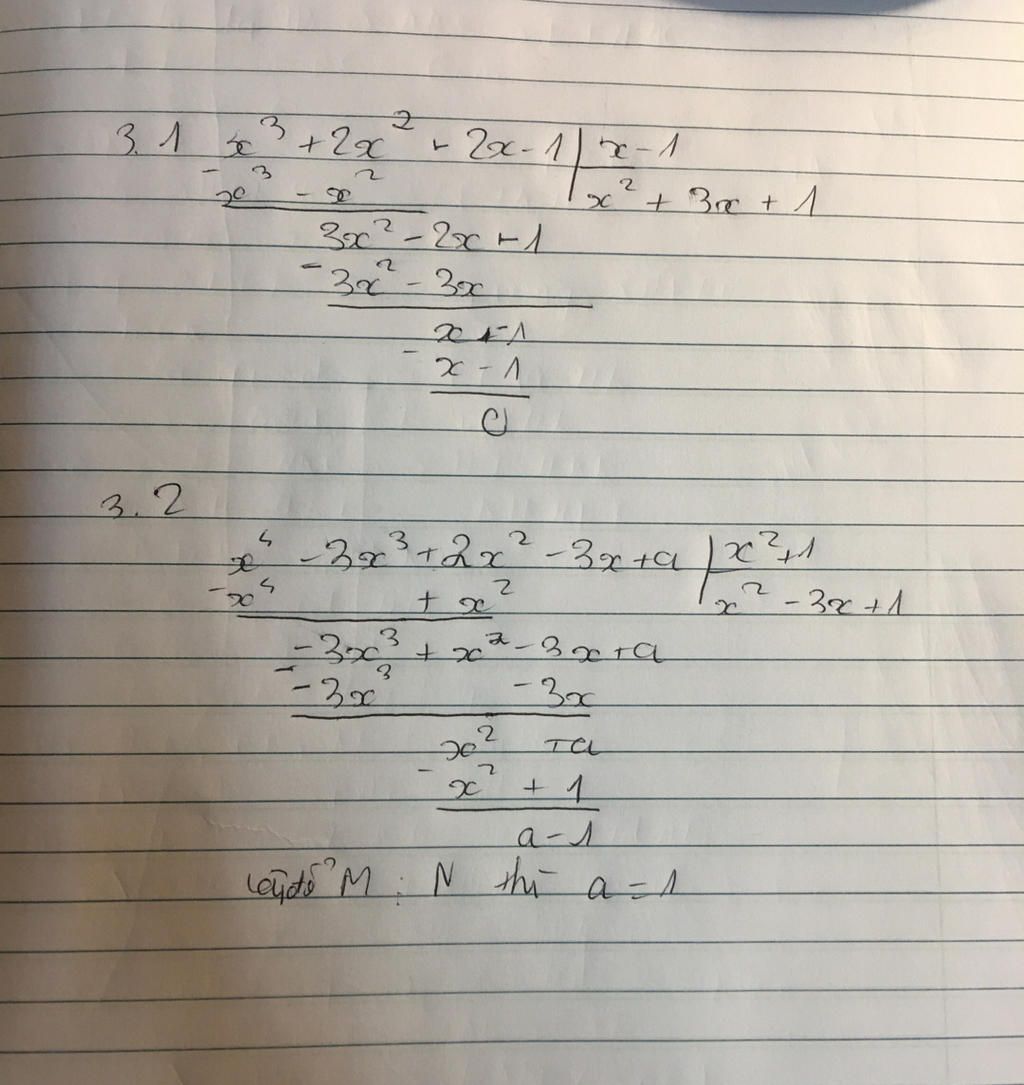 3.1 x³ + 2x² - 2x - 1 | x - 1
- x³ - x² x² + 3x + 1
3x² - 2x - 1
- 3x² - 3x
x - 1
- x - 1
0
3.2
x⁴ - 3x³ + 2x² - 3x + a | x² + 1
- x⁴ + x² x² - 3x + 1
- 3x³ + x² - 3x + a
- - 3x³ - 3x
x² + a
- x² + 1
a - 1
để M : N thì a = 1